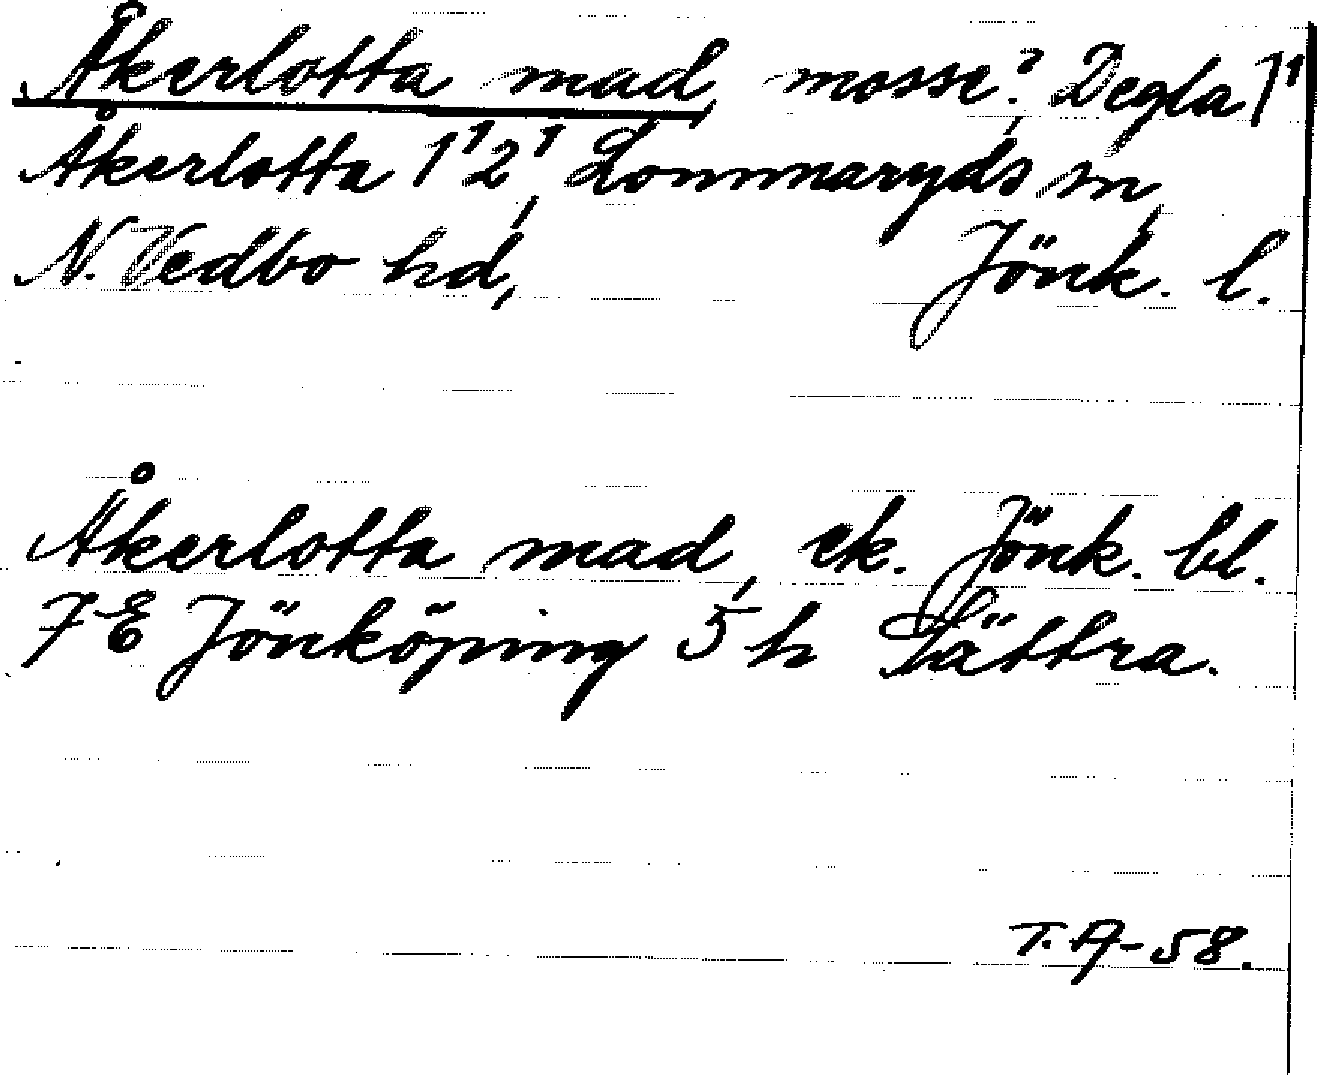 Åkerlotta mad, mosse? Degla 1¹
Åkerlotta 1¹2¹, Lommaryds sn,
N. Vedbo hd, Jönk. l.
Åkerlotta mad, ek. Jönk. bl.
7E Jönköping 5 h Sättra.
T.A-58.